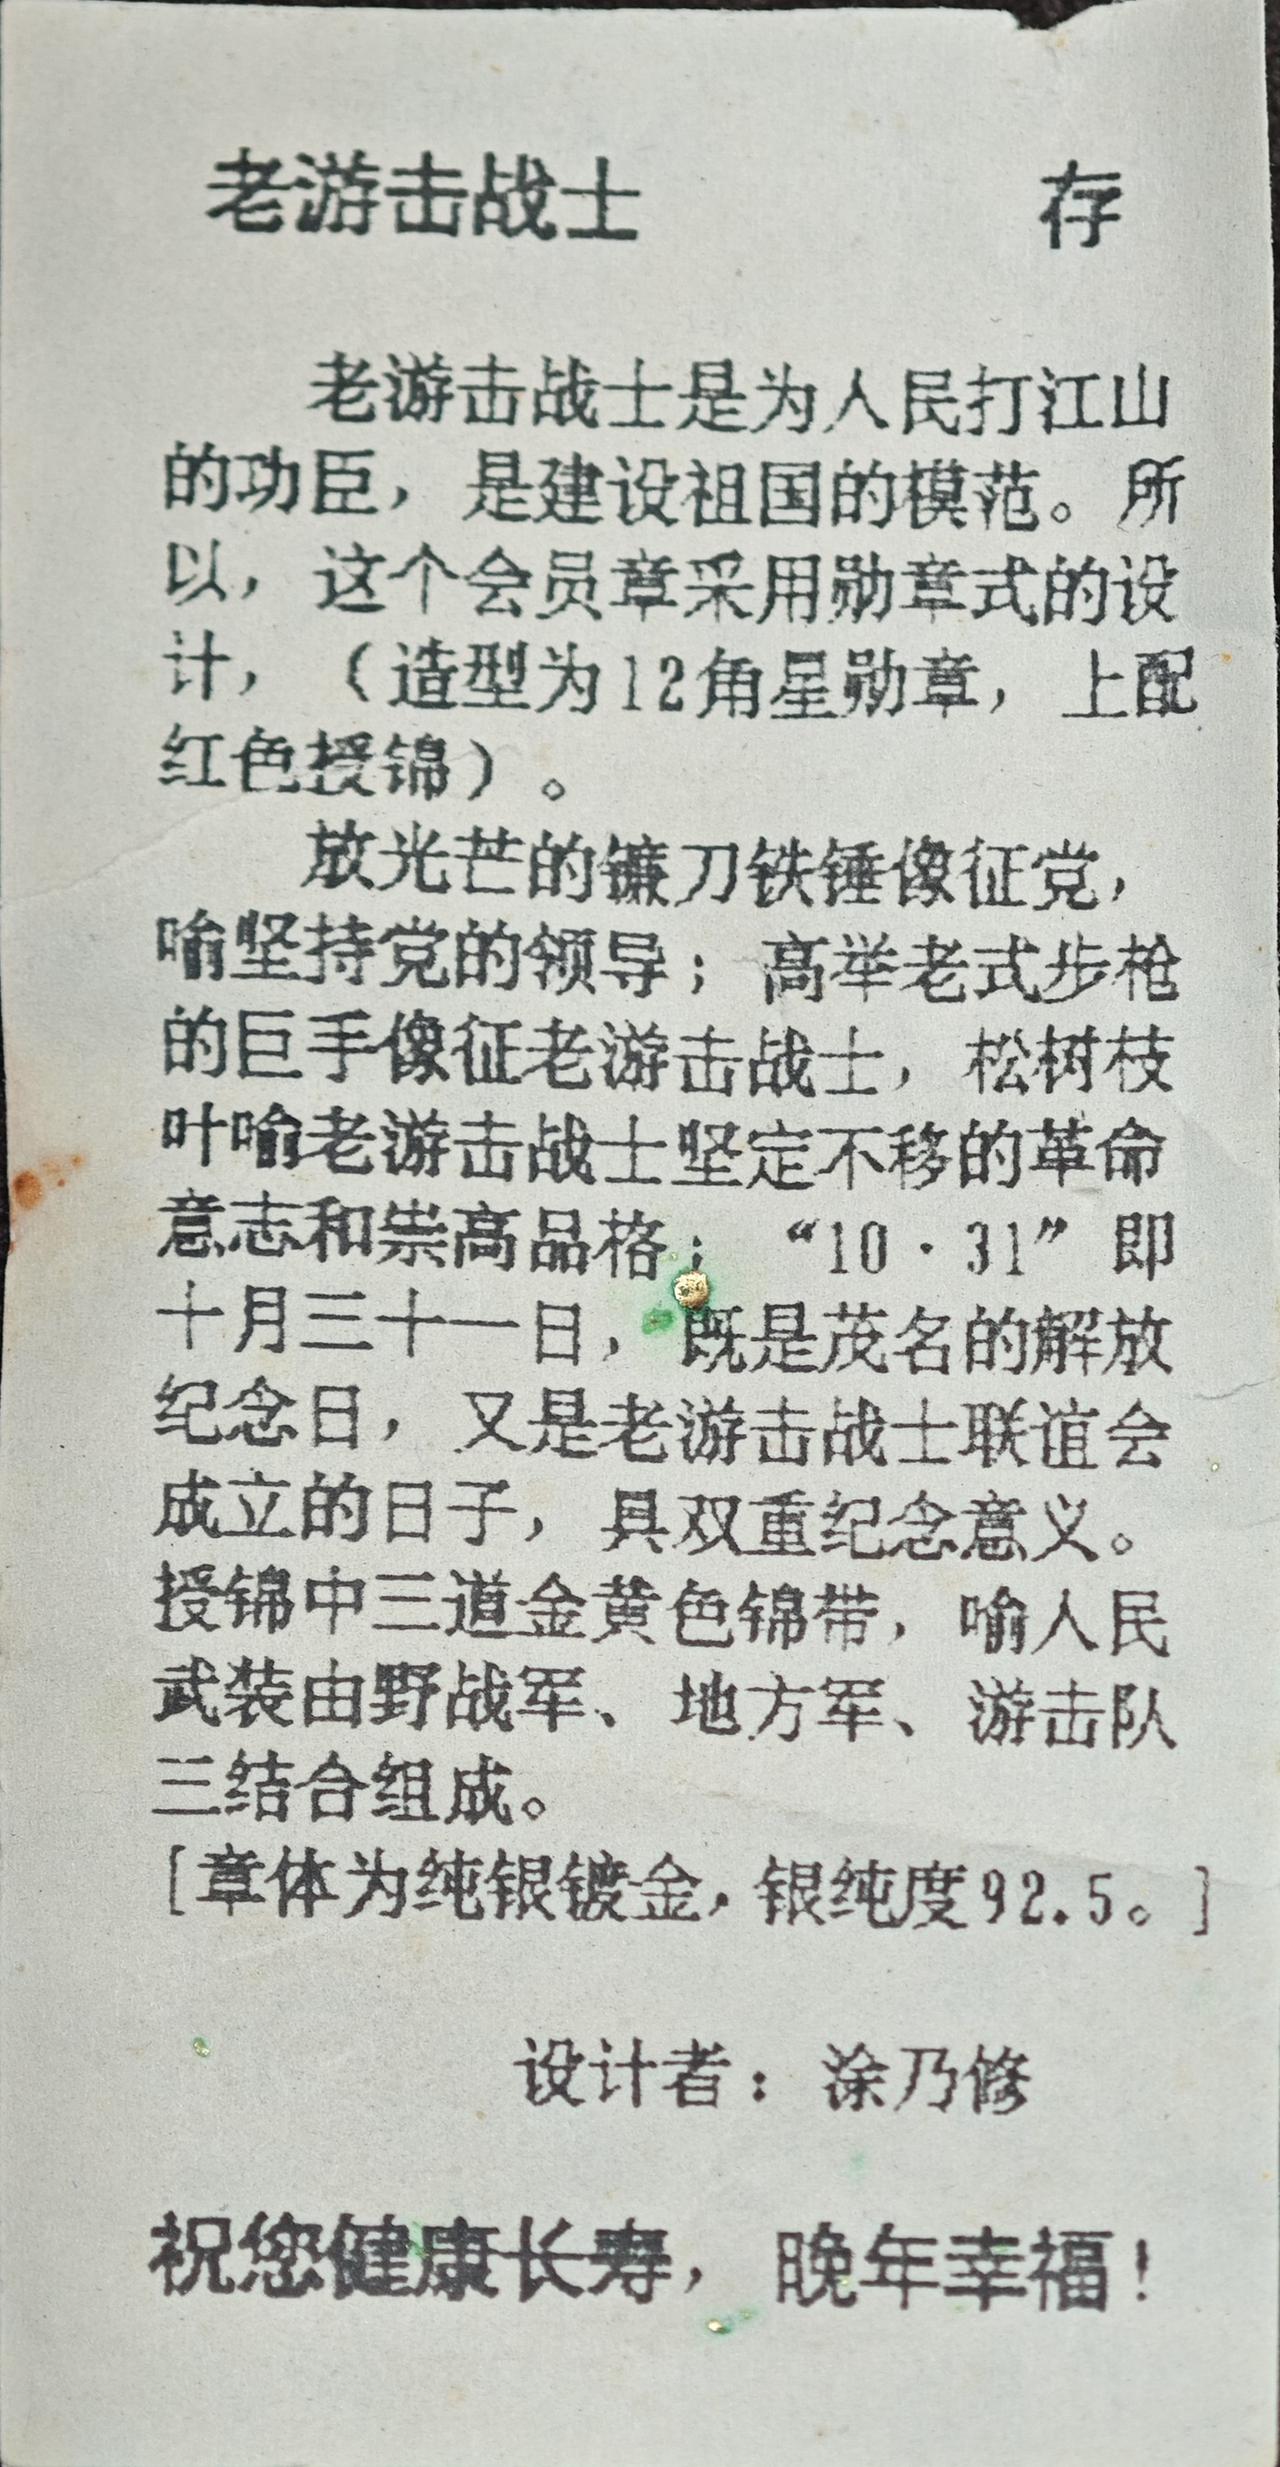 老游击战士 存
老游击战士是为人民打江山
的功臣，是建设祖国的模范。所
以，这个会员章采用勋章式的设
计，（造型为12角星勋章，上配
红色授锦）。
放光芒的镰刀铁锤像征党，
喻坚持党的领导；高举老式步枪
的巨手像征老游击战士，松树枝
叶喻老游击战士坚定不移的革命
意志和崇高品格；“10·31”即
十月三十一日，既是茂名的解放
纪念日，又是老游击战士联谊会
成立的日子，具双重纪念意义。
授锦中三道金黄色锦带，喻人民
武装由野战军、地方军、游击队
三结合组成。
[章体为纯银镀金，银纯度92.5。]
设计者：涂乃修
祝您健康长寿，晚年幸福！